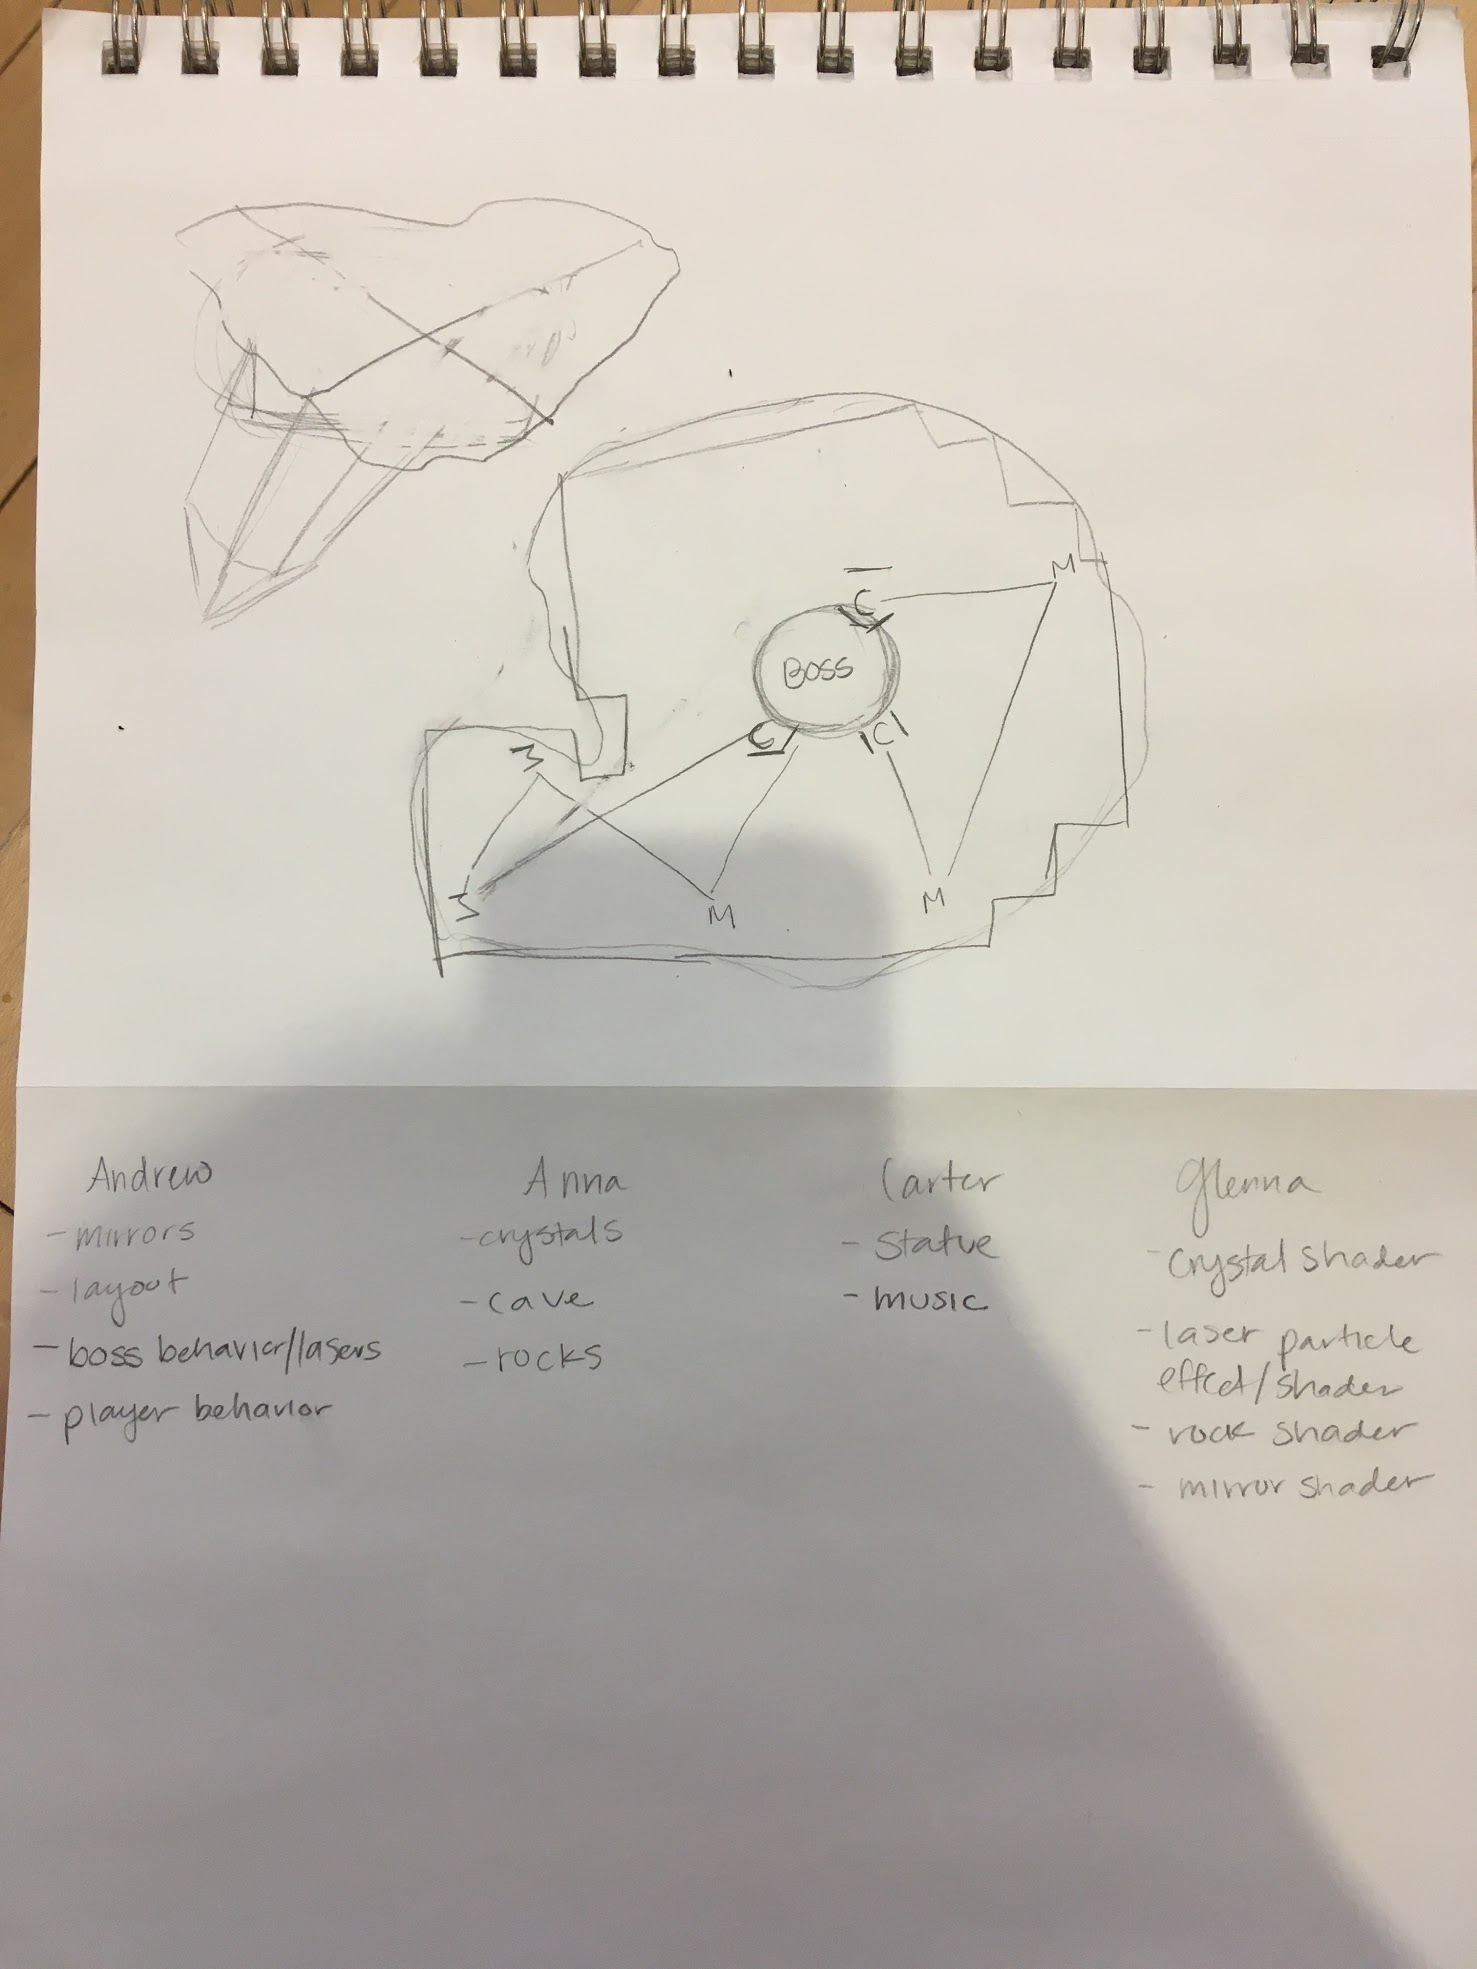 M
C
BOSS
C
C
M
M
M
M
Andrew
- mirrors
- layout
- boss behavior/lasers
- player behavior
Anna
- crystals
- cave
- rocks
Carter
- statue
- music
Glenna
- crystal shader
- laser particle
effect/shader
- rock shader
- mirror shader